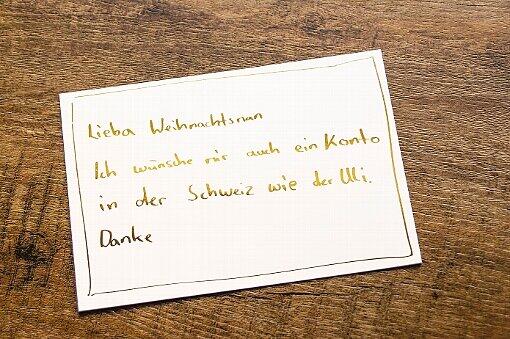 Lieba Weihnachtsman
Ich wünsche mir auch ein Konto
in der Schweiz wie der Uli.
Danke